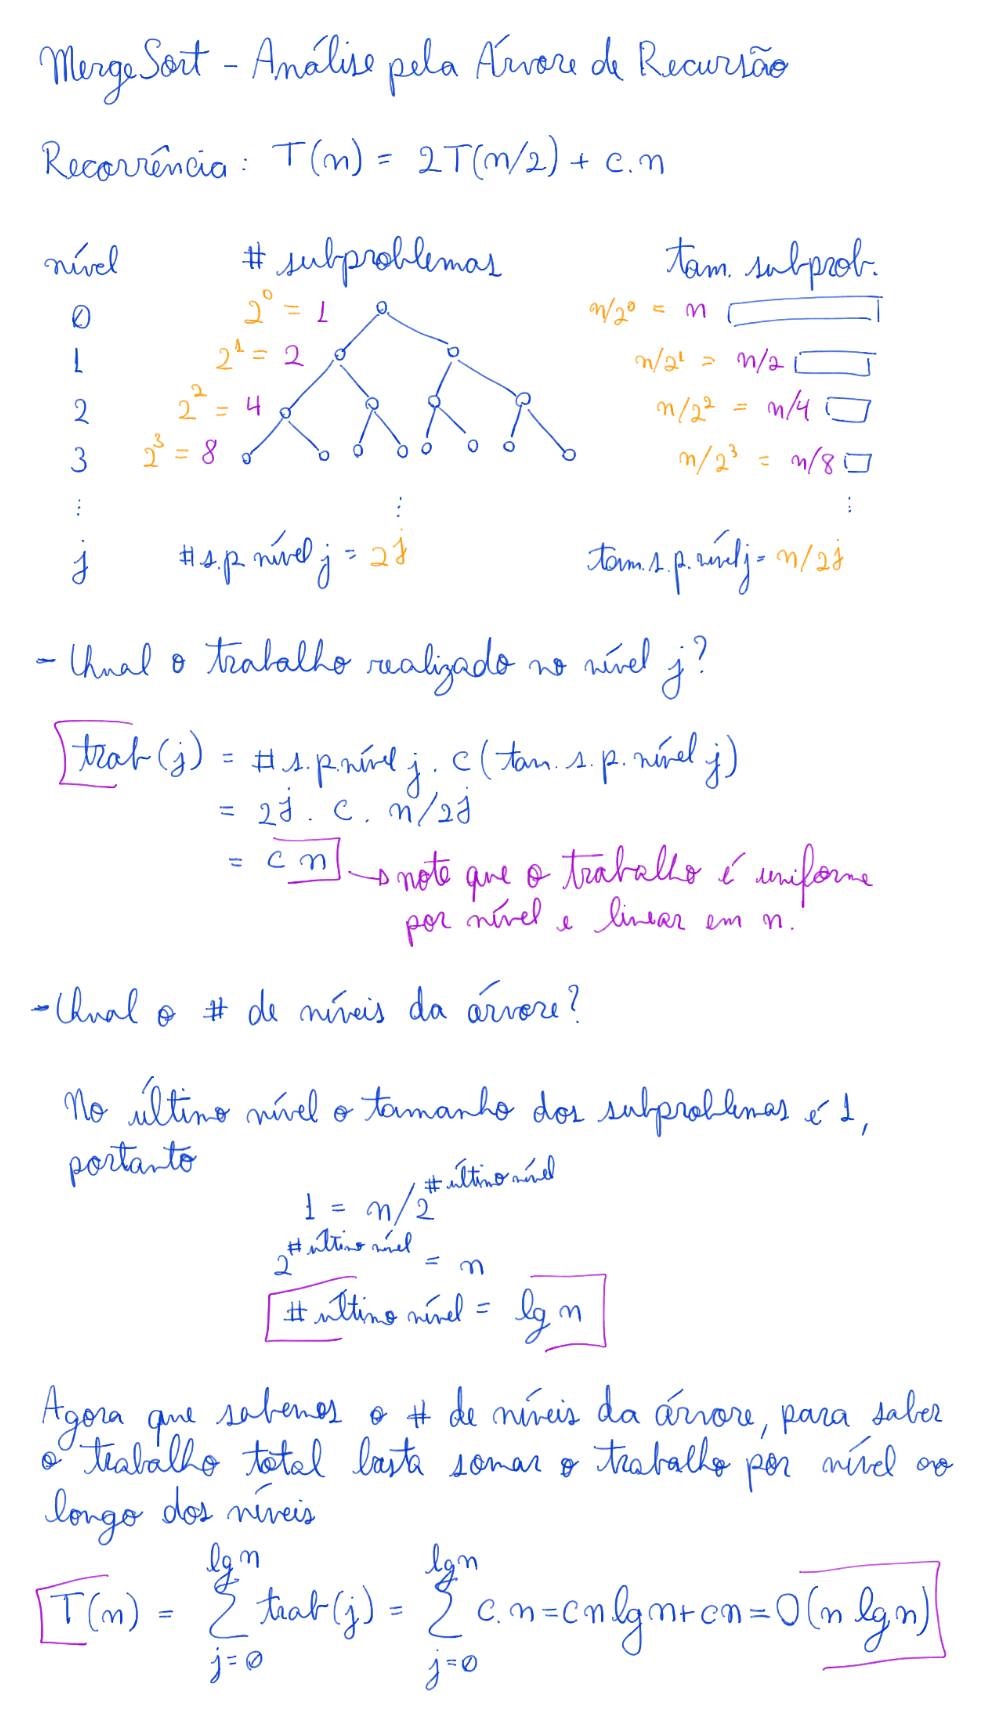 MergeSort - Análise pela Árvore de Recursão
Recorrência: T(n) = 2T(n/2) + c.n
nível # subproblemas tam. subprob.
0 2^0 = 1 n/2^0 = n
1 2^1 = 2 n/2^1 = n/2
2 2^2 = 4 n/2^2 = n/4
3 2^3 = 8 n/2^3 = n/8
⋮ ⋮ ⋮
j #s.p. nível j = 2^j tam. s.p. nível j = n/2^j
- Qual o trabalho realizado no nível j?
trab(j) = # s.p. nível j . c (tam. s.p. nível j)
= 2^j . c . n/2^j
= c n → note que o trabalho é uniforme
por nível e linear em n.
- Qual o # de níveis da árvore?
No último nível o tamanho dos subproblemas é 1,
portanto
1 = n/2^# último nível
2^# último nível = n
# último nível = lg n
Agora que sabemos o # de níveis da árvore, para saber
o trabalho total basta somar o trabalho por nível ao
longo dos níveis
T(n) = ∑_{j=0}^{lg n} trab(j) = ∑_{j=0}^{lg n} c.n = cn lg n + cn = O(n lg n)